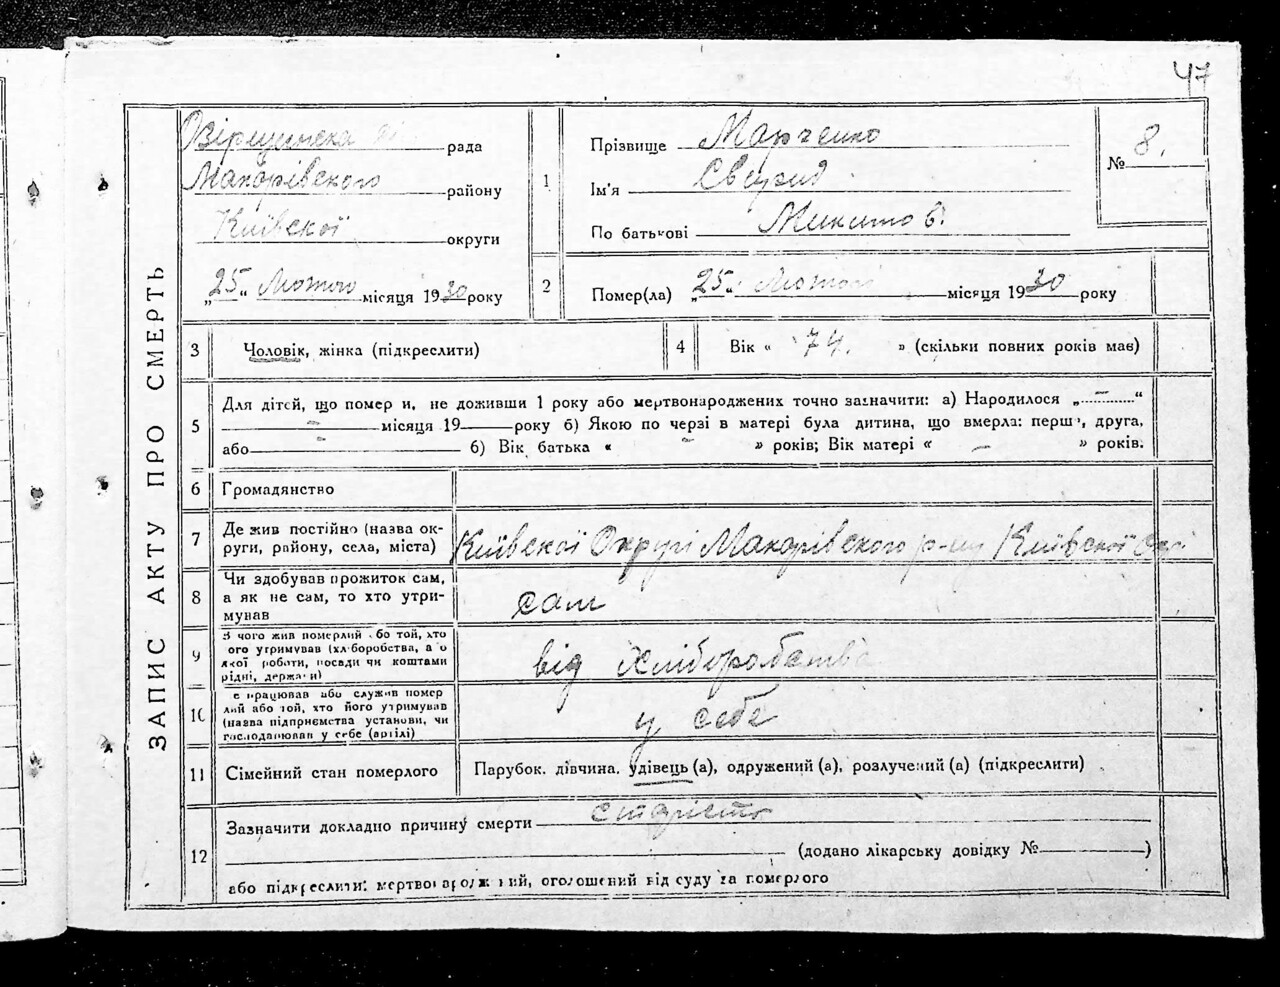 47
ЗАПИС АКТУ ПРО СМЕРТЬ
рада
Макарівского району
Київскої округи
„25“ Лютого місяця 1930 року
1
Прізвище Марченко
Ім'я Свирид
По батькові Микитов.
№ 8.
2
Помер(ла) „25“ Лютого місяця 1930 року
3
Чоловік, жінка (підкреслити)
4
Вік « 74. » (скільки повних років має)
5
Для дітей, що померли, не доживши 1 року або мертвонароджених точно зазначити: а) Народилося „ - “
- місяця 19 року б) Якою по черзі в матері була дитина, що вмерла: перша, друга,
або - б) Вік батька « - » років; Вік матері « - » років.
6
Громадянство
7
Де жив постійно (назва ок-
руги, району, села, міста)
Київскої Округи Макарівского р-ну Київскої
8
Чи здобував прожиток сам,
а як не сам, то хто утри-
мував
сам
9
З чого жив померлий або той, хто
його утримував (хліборобства, або
якої роботи, посади чи коштами
рідні, держави)
від хліборобства
10
Де працював або служив помер
лий або той, хто його утримував
(назва підприємства установи, чи
господарював у себе (артілі)
у себе
11
Сімейний стан померлого
Парубок, дівчина, удівець (а), одружений (а), розлучений (а) (підкреслити)
12
Зазначити докладно причину смерти старість
(додано лікарську довідку № )
або підкреслити: мертвонароджений, оголошений від суду за померлого